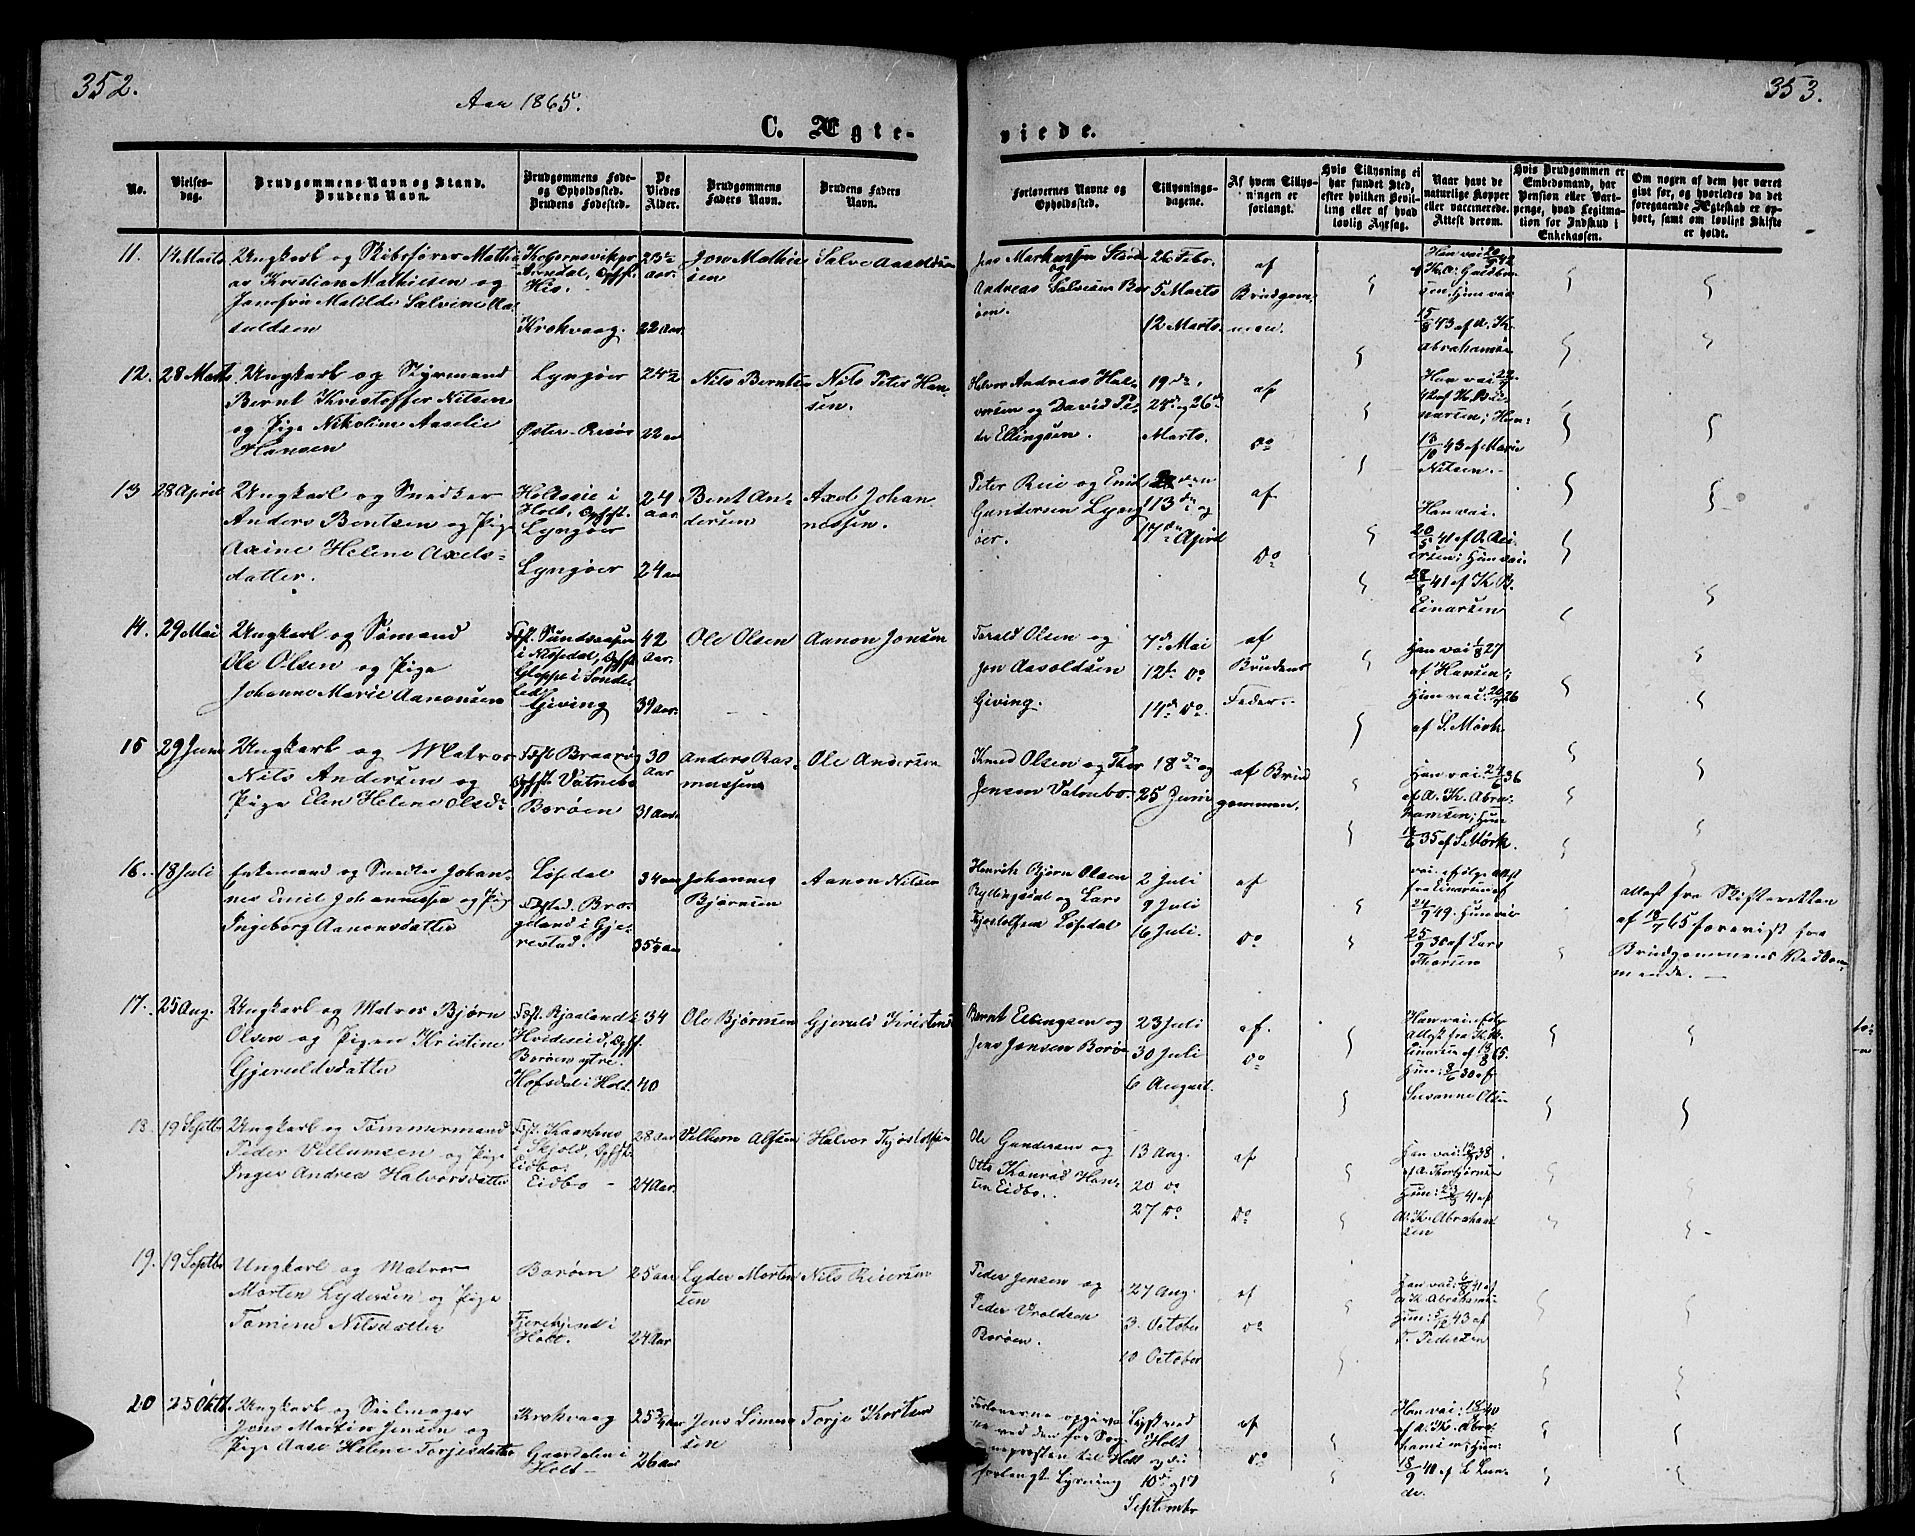 352.
Aar 1865.
353.
C. Ægte-
viede.
No.
Vielses-
dag.
Brudgommens Navn og Stand.
Brudens Navn.
Brudgommens Føde-
og Opholdssted.
Brudens Fødested.
De
Viedes
Alder.
Brudgommens
Faders Navn.
Brudens Faders
Navn.
Forlovernes Navne og
Opholdssted.
Tillysnings-
dagene.
Af hvem Tillys-
ningen er
forlangt.
Hvis Tillysning ei
har fundet Sted,
efter hvilken Bevil-
ling eller af hvad
lovlig Aarsag.
Naar havt de
naturlige Kopper
eller vaccinerede.
Attest derom.
Hvis Brudgommen er
Embedsmand, har
Pension eller Vart-
penge, hvad Legitima-
tion for Indskud i
Enkekassen.
Om nogen af dem har været
givt før, og hvorledes da det
foregaaende Ægteskab er op-
hørt, samt om lovligt Skifte
er holdt.
11. 14 Marts Ungkarl og Skibsfører Mathi-
as Kristian Mathiesen og
Josefin Matilde Salvine Aa-
suldsen
Arendal, Opfst.
His.
Krokvaag.
23½
Aar.
22 Aar.
Jon Mathie
sen
Salve Aasuldsen
Jens Markussen
og
Andreas Salvesen Bor
øen.
26 Febr.
5 Marts
12 Marts.
af
Brudgom-
men.
15/8 43 af A. K.
Abrahamsen
12. 28 Marts Ungkarl og Styrmand
Bernt Kristoffer Nilsen
og Pige Nikoline Aaselie
Hansen
Lyngøer
Øster-Risør
24½
22 aar
Nils Berntsen
Nils Peter Han-
sen.
Halvor Andreas Hal-
vorsen og David Pe-
der Ellingsen.
19de,
24de og 26de
Marts.
af
Do
43 af Marie
Nilsen.
13 28 April Ungkarl og Snedker
Anders Bentsen og Pige
Axine Helene Axels-
datter.
Holt, Opfst.
Lyngøer
Lyngøer
24
aar.
24 aar
Bent An-
dersen
Axel Johan
nessen.
Peter Reie og
Gundersen Lyng
øer.
13de og
17de April
af
Do
Han vac.
41 af K. B.
Einarsen
14. 29 Mai Ungkarl og Sømand
Ole Olsen og Pige
Johanne Marie Aanonsen
i Nissedal, Opfst.
Gloppe i Sønde-
led
Giving
42
Aar.
39 Aar.
Ole Olsen
Aanon Jonsen
Torald Olsen og
Jon Aasoldsen
Giving.
7de Mai
12te Do
14de Do.
af
Brudens
Fader.
Han vac. 1/8 27
af Hansen;
Hun vac. 26
af S. Mørk.
15 29 Juni Ungkarl og Matros
Nils Andersen og
Pige Elen Helene Olsdr
Opfst. Vatnebo
Borøen
30
Aar
31 Aar.
Anders Ras-
mussen
Ole Andersen
Knud Olsen og Thor
Jensen Vatnebo.
18de og
25 Juni
af Brud
gommen.
Han vac. 24/6 36
af A. K. Abra-
hamsen; Hun
35 af S. Mørk.
16. 18 Juli Enkemand og Snedker Johan-
nes Emil Johannessen og Pige
Ingeborg Aanonsdatter
Løfdal
Gje-
restad.
34 aar
35½ aar
Johannes
Bjørnsen
Aanon Nilsen
Henrik Bjørn Olsen
og Lars
Kjostolfsen Løfdal
2 Juli
9 Juli
16 Juli.
af
Do
vac. ifølge Attest
fra Einarsen af
24/9 49. Hun vac.
25/9 30 af Lars
Thorsen
Attest fra Skifteretten
af 18/7 65 forevist fra
Brudgommens Vedkom-
mende.
17. 25 Aug. Ungkarl og Matros Bjørn
Olsen og Pigen Kristine
Gjeruldsdatter
Hvideseid, Opfst.
Borøen ytre
Hofsdal i Holt
34
40
Ole Bjørnsen
Gjeruld Kristens
Bernt Ellingsen og
Jens Jensen Borø
23 Juli
30 Juli
6 August.
af.
Do
Han vac. efter
Attest fra K. B.
Einarsen af 65.
Hun: 30 af
Susanne Olsen
18. 19 Septbr Ungkarl og Tømmermand
Peder Villumsen og Pige
Inger Andrea Halvorsdatter
i Skjold, Opfst.
Eidbo.
Eidbo
28 Aar
24 Aar.
Villum Alfsen
Halvor Kjøstolfsen
Ole Gundersen og
Otto Konrad Han-
sen Eidbo.
13 Aug.
20 Do
27 Do
af
Do
Han vac: 38.
af A. Thorbjørnsen
Hun: 41 af
A. K. Abraham
sen
19. 19 Septbr Ungkarl og Matros
Morten Lydersen og Pige
Tomine Nilsdatter
Borøen
Holt.
25 aar
24 Aar
Lyder Morten
sen
Nils Reiersen
Peder Jensen og
Peder Vroldsen
Borøen.
27 Aug.
3. October
10 October
af
Do
Han vac: 41 af
A. K. Abrahams-
Hun: 5/12 43 af
T. Pedersen
20 25 Oktb. Ungkarl og Seilmager
Jens Martin Jensen og
Pige Aase Helene Torjesdatter
Krokvaag
Gaardalen i
Holt
25¾ aar
26 aar
Jens Simon
sen
Torje Kortsen
Forloverne opgiv-
ne ved den for Sog-
nepresten til Holt
forlangte Lysning
Lyst ved
Holt
10de og 17
Septembr
af
Do
Han vac: 40
af A. K. Abra-
hamsen; Hun:
18/9 40 af L. Lun-
de.